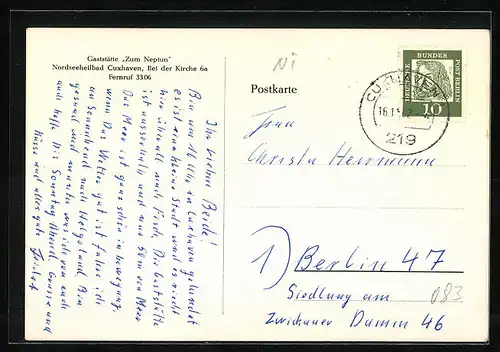 Gaststätte „Zum Neptun"
Nordseeheilbad Cuxhaven, Bei der Kirche 6a
Fernruf 3306
Ihr lieben Beide!
Bin um 16 Uhr in Cuxhaven gelandet
es ist eine kleine Stadt und es riecht
hier überall nach Fisch. Die Gaststätte
ist ausserhalb und nur 50 m vom Meer
Das Meer ist ganz schön in bewegung.
wenn Das Wetter gut ist fahre ich
am Sonnabend nach Helgoland. Bin
gesund und munter was ich von euch
auch hoffe. Bis Sonntag Abend. Grüsse und
Küsse und alles gute
Postkarte
Frau
Christa Herrmann
1) Berlin 47
Siedlung am
Zwickauer Damm 46
083
Ni
DEUTSCHE BUNDES POST BERLIN
10
CUXHAVEN
219